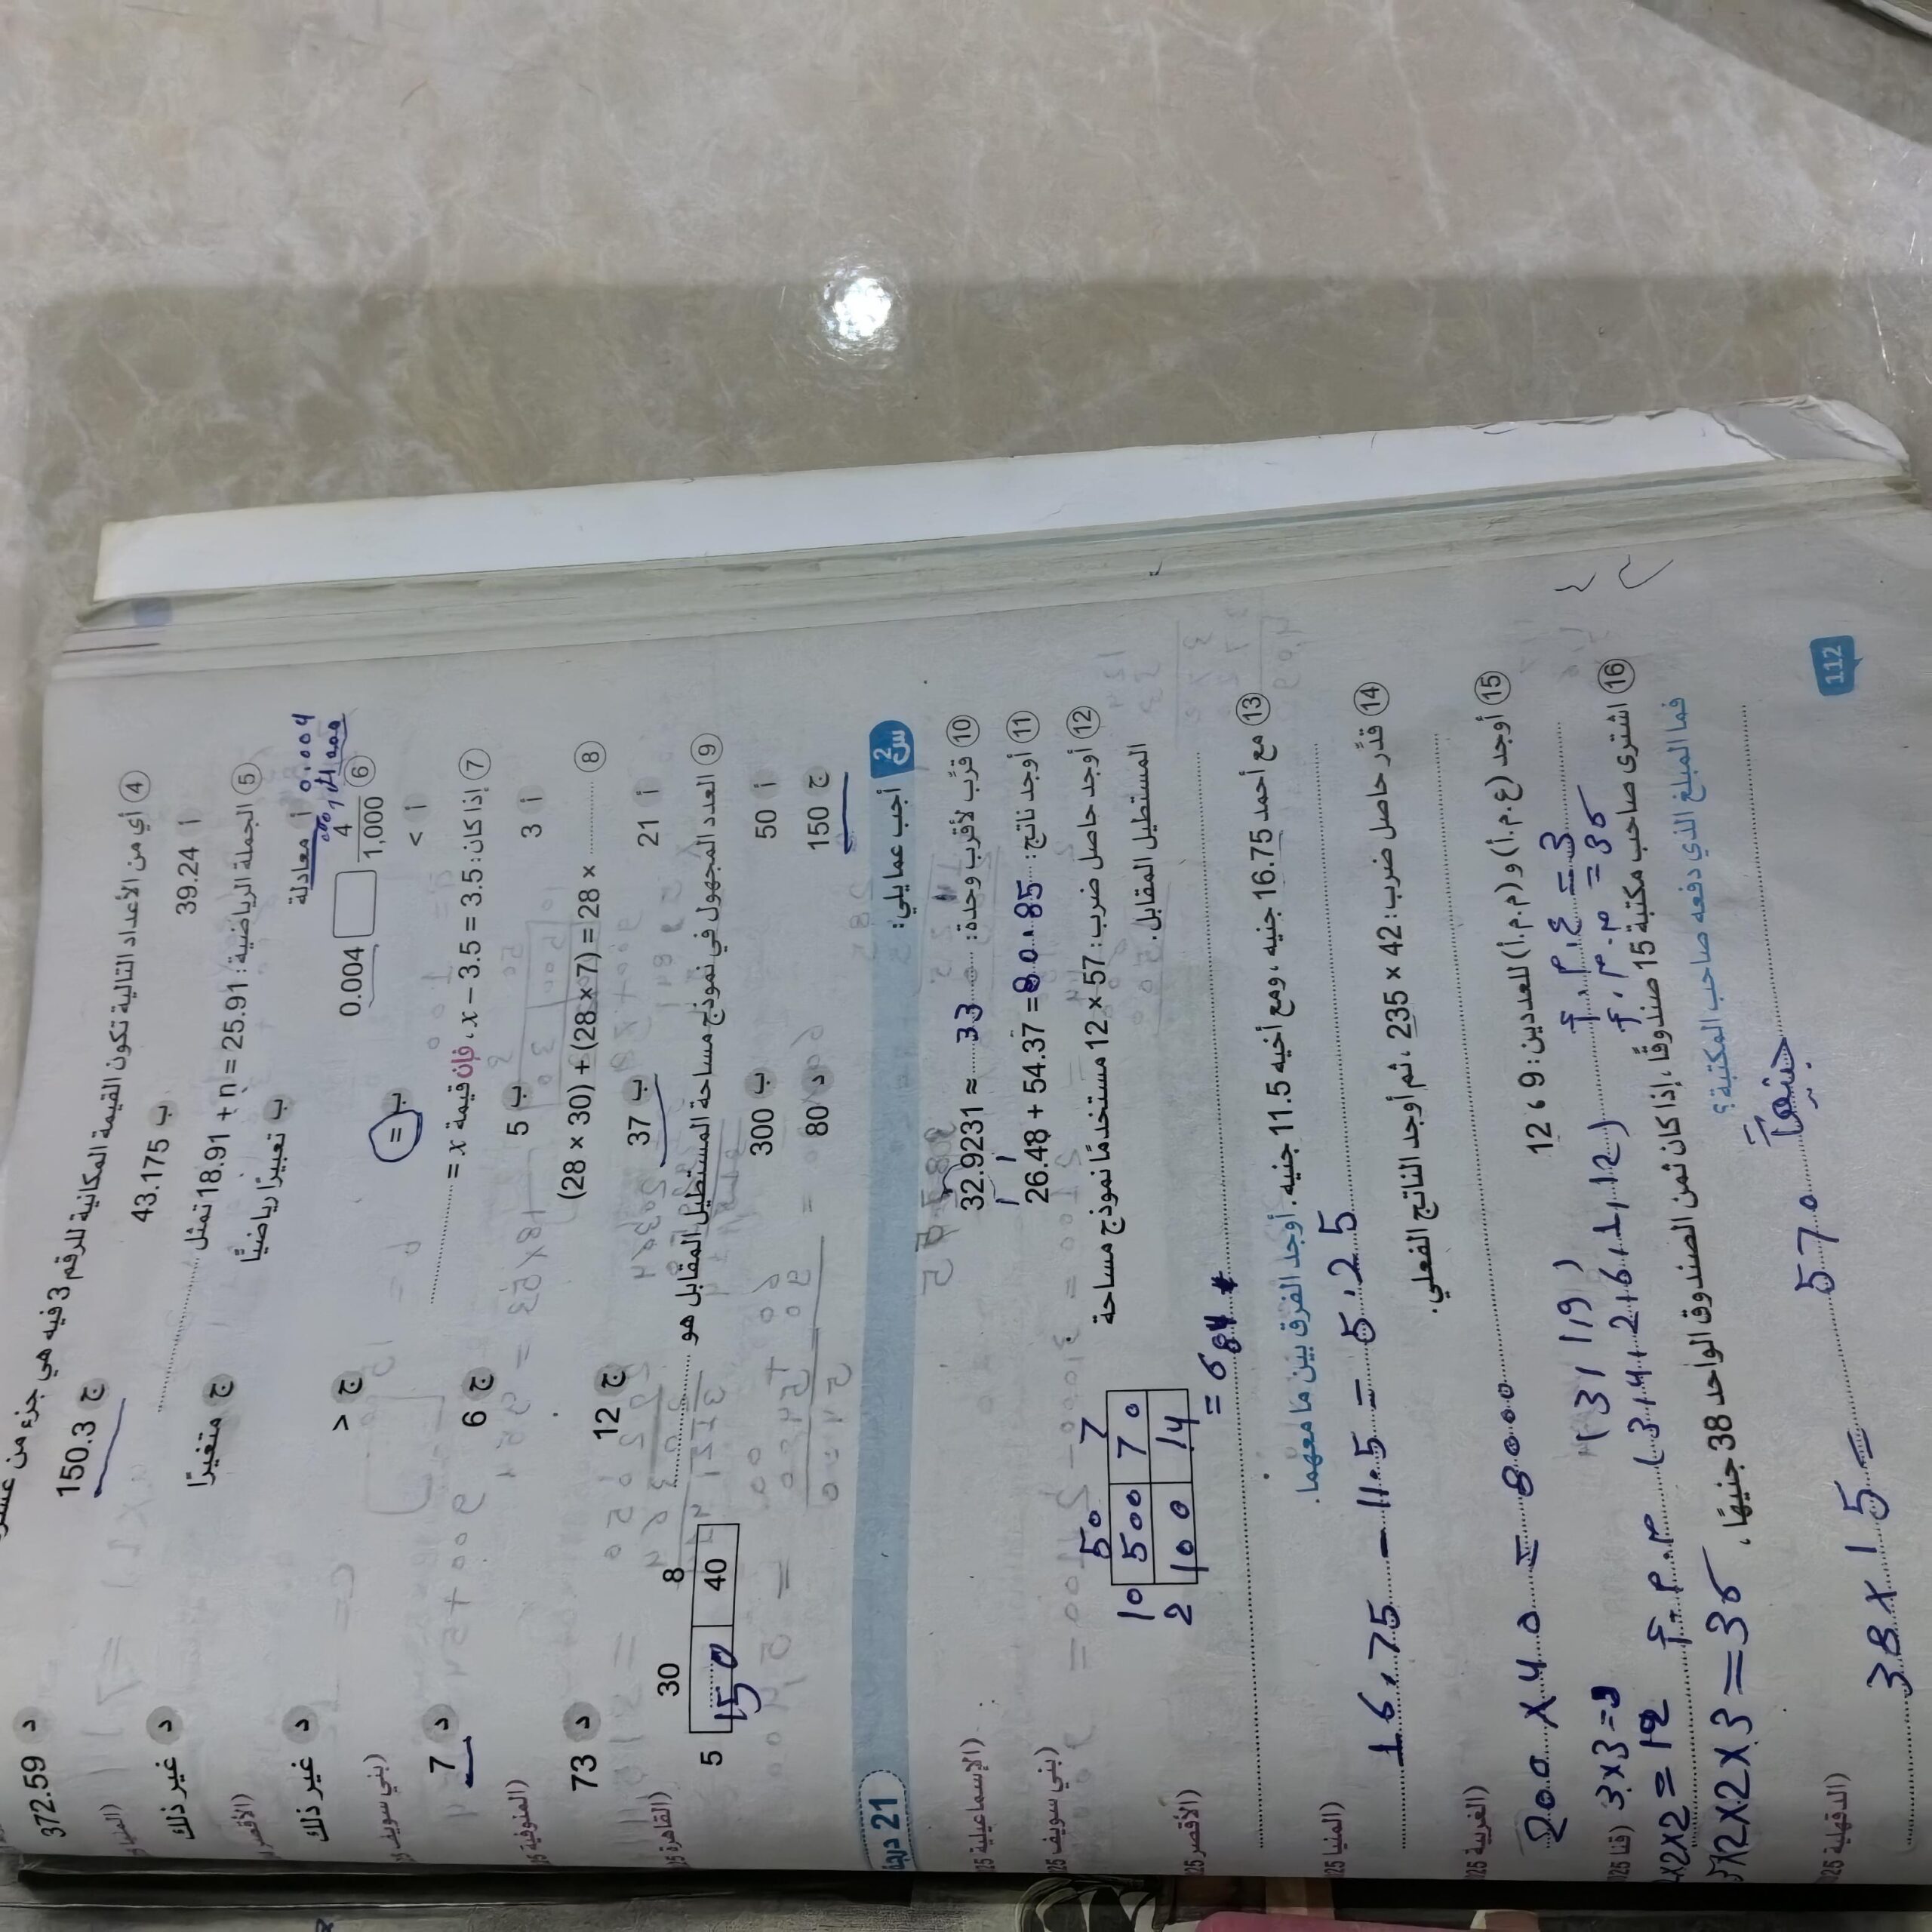 372.59 د
④ أي من الأعداد التالية تكون القيمة المكانية للرقم 3 فيه هي جزء من
أ 39.24 ب 43.175 ج 150.3
⑤ الجملة الرياضية: 18.91 + n = 25.91 تمثل ............
أ معادلة ب تعبيرًا رياضيًّا ج متغيرًا د غير ذلك
0.004
⑥ 0.004 □ 4/1,000
أ < ب = ج > د غير ذلك
⑦ إذا كان: x − 3.5 = 3.5، فإن قيمة x = ............ (بني سويف
أ 3 ب 5 ج 6 د 7
⑧ (28 × 30) + (28 × 7) = 28 × ............ (المنوفية 25
أ 21 ب 37 ج 12 د 73
⑨ العدد المجهول في نموذج مساحة المستطيل المقابل هو ............ (القاهرة 25
أ 50 ب 300
ج 150 د 80
30 8
5 150 40
س2 أجب عما يلي: 21 درجة
⑩ قرِّب لأقرب وحدة: 32.9231 ≈ 33 (الإسماعيلية 25
⑪ أوجد ناتج: 26.48 + 54.37 = 80.85 (بني سويف 25
⑫ أوجد حاصل ضرب: 57 × 12 مستخدمًا نموذج مساحة
المستطيل المقابل. (الأقصر 25
50 7
10 500 70
2 100 14
= 684
⑬ مع أحمد 16.75 جنيه، ومع أخيه 11.5 جنيه. أوجد الفرق بين ما معهما. (المنيا 25
16.75 − 11.5 = 5.25
⑭ قدِّر حاصل ضرب: 42 × 235، ثم أوجد الناتج الفعلي. (الغربية 25
200 × 40 = 8000
⑮ أوجد (ع.م.أ) و (م.م.أ) للعددين: 9 ، 12 (قنا 25
3×3=9 (3,1,9) ع.م.أ = 3
2×2 = 12 م.م.أ (3,4,2,6,1,12) م.م.أ = 36
×2×2×3=36
⑯ اشترى صاحب مكتبة 15 صندوقًا، إذا كان ثمن الصندوق الواحد 38 جنيهًا،
فما المبلغ الذي دفعه صاحب المكتبة؟ (الدقهلية 25
38×15 = 570 جنيهاً
112